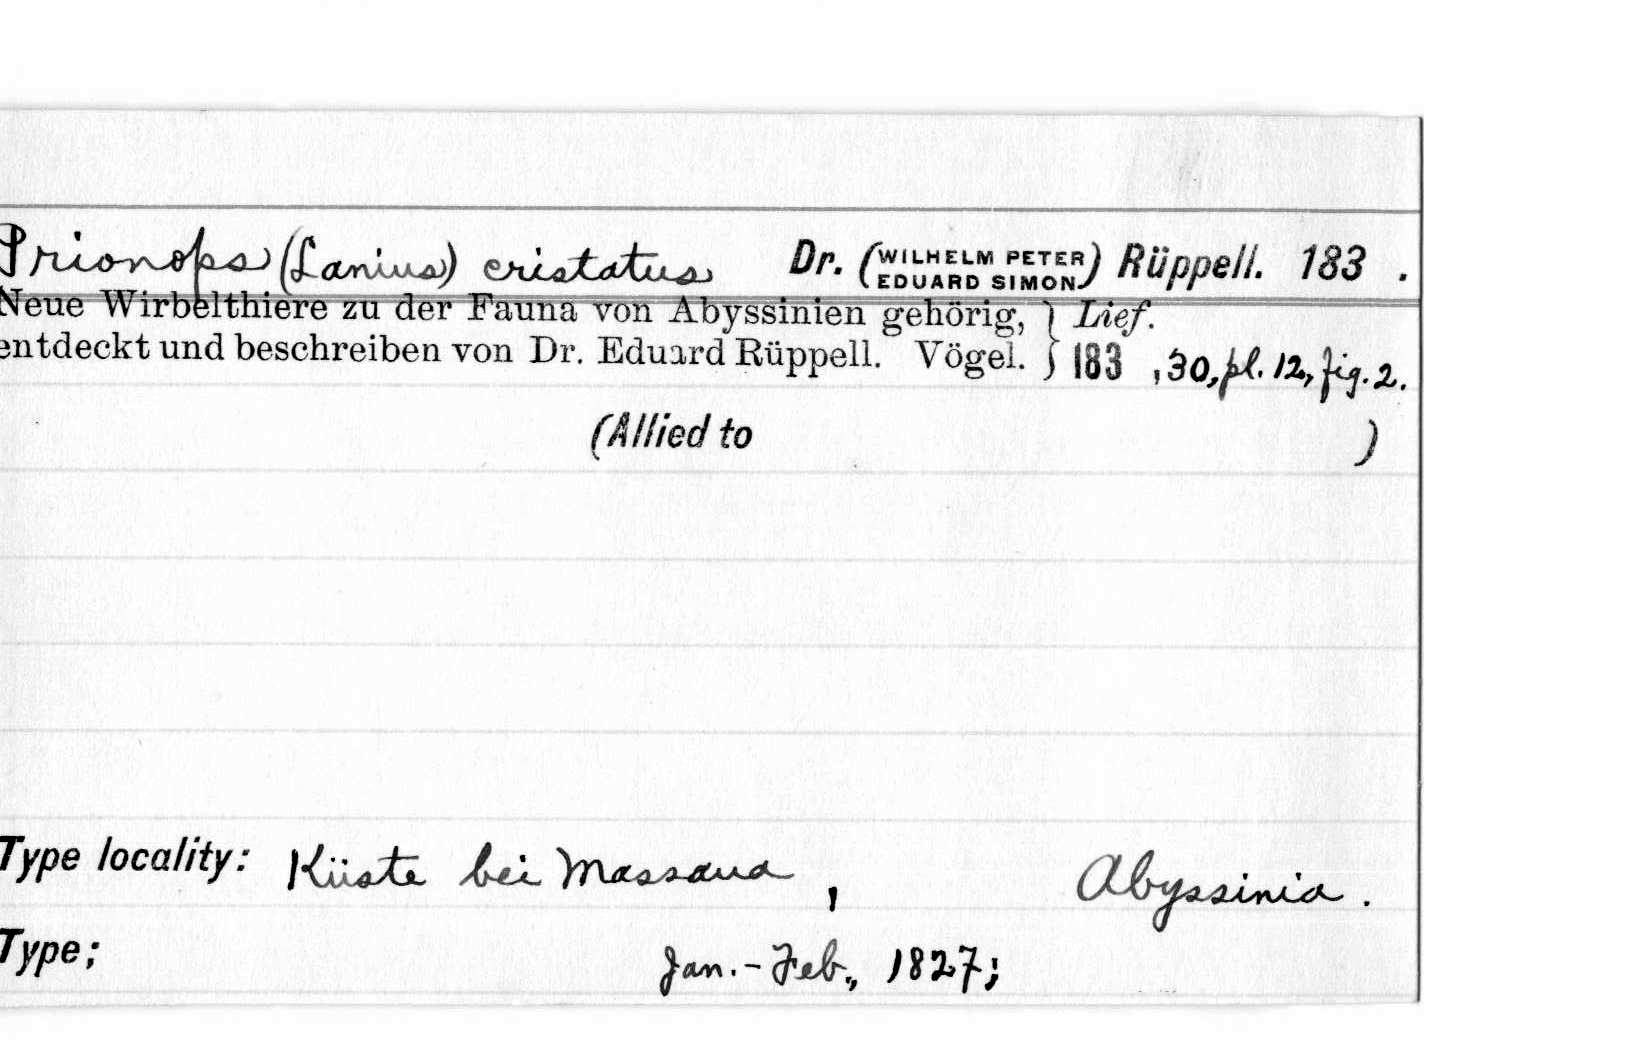 Prionops (Lanius) cristatus Dr. (WILHELM PETER EDUARD SIMON) Rüppell. 183 .
Neue Wirbelthiere zu der Fauna von Abyssinien gehörig, } Lief.
entdeckt und beschreiben von Dr. Eduard Rüppell. Vögel. } 183 , 30, pl. 12, fig. 2.
(Allied to )
Type locality: Küste bei Massaua , Abyssinia .
Type; Jan. - Feb., 1827;